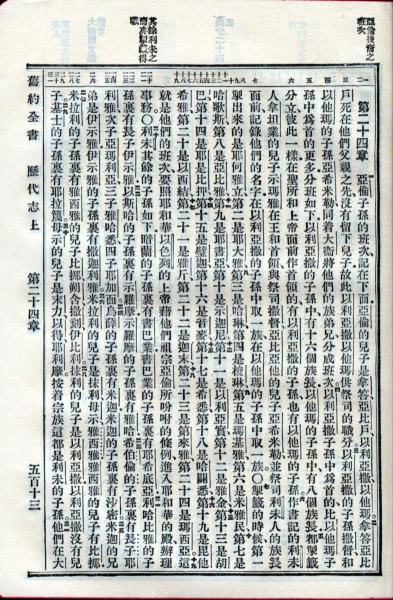 亞倫後裔之班次
第二十四章 亞倫子孫的班次記在下面亞倫的兒子是拿答亞比戶以利亞撒以他瑪拿答亞比
戶死在他們父親之先沒有留下兒子故此以利亞撒以他瑪供祭司的職分以利亞撒的子孫撒督和
以他瑪的子孫亞希米勒同着大衞將他們的族弟兄分成班次以利亞撒子孫中爲首的比以他瑪子
孫中爲首的更多分班如下以利亞撒的子孫中有十六個族長以他瑪的子孫中有八個族長都掣籤
分立彼此一樣在聖所和上帝面前作首領的有以利亞撒的子孫也有以他瑪的子孫作書記的利未
人拿坦業的兒子示瑪雅在王和首領與祭司撒督亞比亞他的兒子亞希米勒並祭司利未人的族長
面前記錄他們的名字在以利亞撒的子孫中取一族在以他瑪的子孫中取一族○掣籤的時候第一
掣出來的是耶何雅立第二是耶大雅第三是哈琳第四是梭琳第五是瑪基雅第六是米雅民第七是
哈歌斯第八是亞比雅第九是耶書亞第十是示迦尼第十一是以利亞實第十二是雅金第十三是胡
巴第十四是耶是比押第十五是璧迦第十六是音麥第十七是希悉第十八是哈闢悉第十九是毘他
希雅第二十是以西結第二十一是雅斤第二十二是迦末第二十三是第來雅第二十四是瑪西亞這
就是他們的班次要照耶和華以色列的上帝藉他們祖宗亞倫所吩咐的條例進入耶和華的殿辦理
事務○利未其餘的子孫如下暗蘭的子孫裏有書巴業書巴業的子孫裏有耶希底亞利哈比雅的子
孫裏有長子伊示雅以斯哈的子孫裏有示羅摩示羅摩的子孫裏有雅哈希伯倫的子孫裏有長子耶
利雅次子亞瑪利亞三子雅哈悉四子耶加面烏薛的子孫裏有米迦米迦的子孫裏有沙密米迦的兄
弟是伊示雅伊示雅的子孫裏有撒迦利雅米拉利的兒子是抹利母示雅西雅雅西雅的兒子有比挪
米拉利的子孫裏有雅西雅的兒子比挪朔含撒刻伊比利抹利的兒子是以利亞撒以利亞撒沒有兒
子基士的子孫裏有耶拉篾母示的兒子是末力以得耶利摩按着宗族這都是利未的子孫他們在大
舊約全書 歷代志上 第二十四章 五百十三